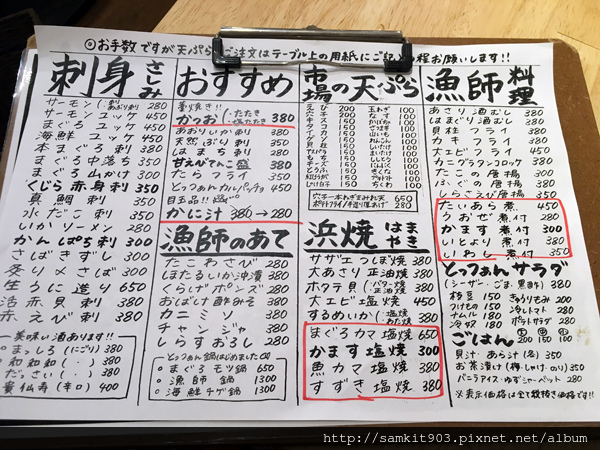 ◎お手数ですが天ぷらご注文はテーブル上の用紙にご記入の程お願いします!!
刺身 さしみ
サーモン 刺 あぶり刺 280
サーモン ユッケ 450
まぐろ ユッケ 450
海鮮 ユッケ 450
本まぐろ 刺 380
まぐろ中落ち 350
まぐろ山かけ 350
くじら赤身刺 350
真鯛 刺 350
水だこ 刺 350
いかソーメン 280
かんぱち刺 300
さばきずし 300
炙り〆さば 350
生うに造り 650
活赤貝 刺 450
赤えび 刺 380
美味い酒あります!!
まっしろ(にごり) 380
和和和( . ) 380
だっさい( . ) 380
蔵仙寿(辛口) 400
おすすめ
藁焼き!!
かつお ・たたき ・塩たたき 380
あおりいか刺 380
天然ぶり刺 350
はまち刺 280
甘えびてんこ盛 380
たら フライ 350
とっつぁんカルパッチョ 450
目玉品!!
かに汁 380→280
漁師のあて
たこわさび 280
ほたるいか沖漬 380
くらげポンズ 280
おばけ酢みそ 380
カニミソ 380
チャンジャ 380
しらすおろし 280
とっつぁん鍋はじめました
・まぐろモツ鍋 650
・漁師鍋 1300
・海鮮チゲ鍋 1300
市場の天ぷら
えび 200 玉ねぎ 100
なす 100
かぼちゃ 100
さつま芋 100
しいたけ 100
れんこん 100
ししとう 100
ちくわ 100
穴子一本わさまさみ天 650
ポテトフライ 280
浜焼 はまやき
サザエつぼ焼 380
大あさり 正油焼 380
ホタテ貝 ・バター焼 ・正油焼 380
大エビ塩焼 450
するめいか ・塩焼 ・わた焼 380
まぐろカマ塩焼 650
かます 塩焼 300
魚カマ 塩焼 380
すずき 塩焼 380
漁師料理
あさり酒むし 380
はまぐり酒むし 380
貝柱フライ 380
カキフライ 380
大エビフライ 450
カニグラタンコロッケ 380
たこの唐揚 380
ふぐの唐揚 380
しらうえび唐揚 350
たいあら煮 450
うおぜ煮付 280
かます煮付 300
いとより煮付 380
いわし煮付 350
とっつぁんサラダ
(シーザー・ごま・青じそ) 380
枝豆 150 きゅうりもみ 200
つけもの 150 冷しトマト 280
ナムル 150 ポテトサラダ 280
冷奴 180
ごはん 大 200 中 150 小 100
貝汁・あら汁(各) 350
お茶漬け(梅・しゃけ・のり) 350
バニラアイス・ゆずシャーベット 280
※表示価格は全て税抜き価格です!!
http://samkit903.pixnet.net/album